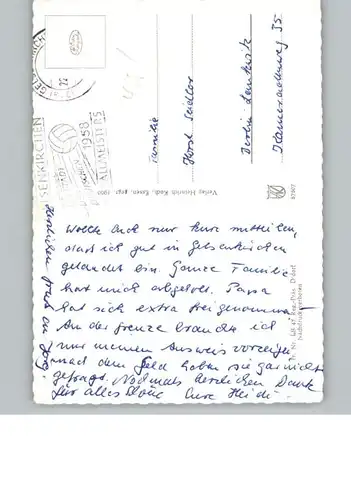 GELSENKIRCHEN
1958
ALTMEISTER
Familie
Horst Seidler
Berlin Lankwitz
55
Verlag Heinrich Koch, Essen, gegr. 1900
Wollte Euch nur kurz mitteilen,
dass ich gut in Gelsenkirchen
gelandet bin. Ganze Familie
hat mich abgeholt. Papa
hat sich extra freigenommen
An der Grenze brauchte ich
nur meinen Ausweis vorzeigen
nach dem Geld haben sie gar nicht
gefragt. Nochmals herzlichen Dank
für alles Eure Heidi.
Herzlichen Gruß an Jörg.